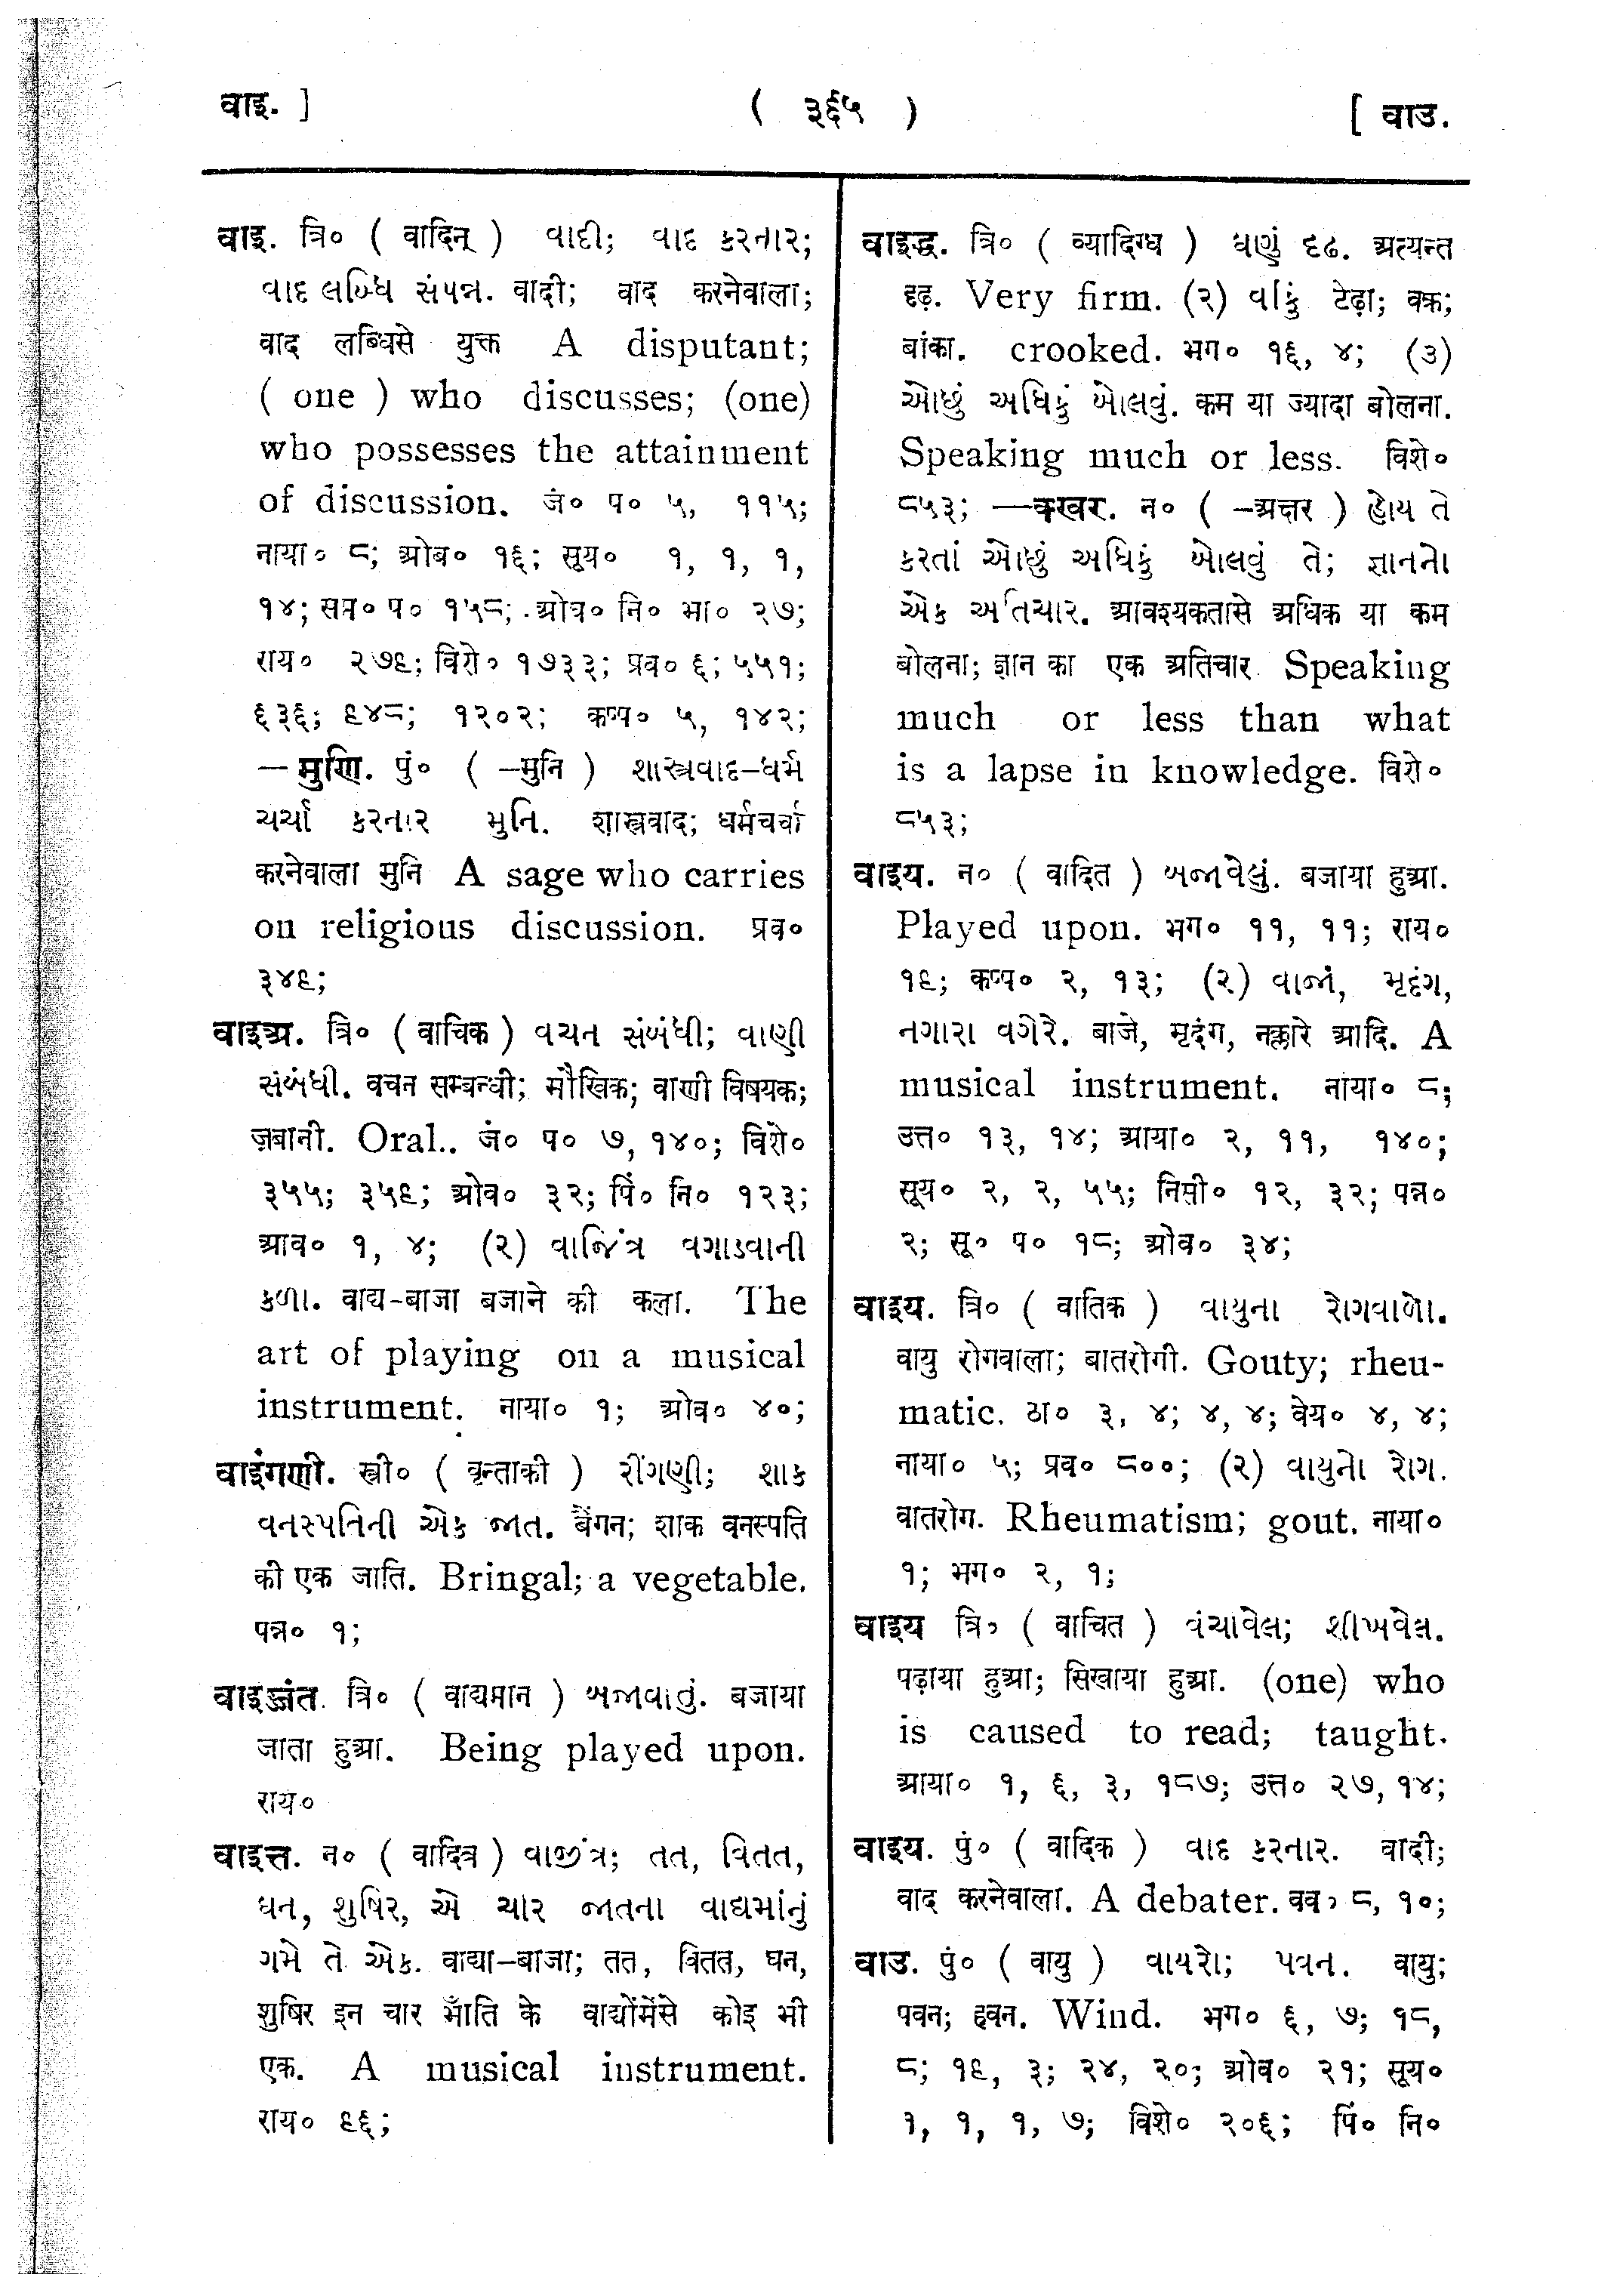 वाइ. ]
( ३६५ )
[ वाउ.
वाइ. त्रि० ( वादिन् ) વાદી; વાદ કરનાર;
વાદ લબ્ધિ સંપન્ન. वादी; वाद करनेवाला;
वाद लब्धिसे युक्त A disputant;
( one ) who discusses; (one)
who possesses the attainment
of discussion. जं० प० ५, ११५;
नाया० ८; ओव० १६; सूय० १, १, १,
१४; सम० प० १५८; ओव० नि० भा० २७;
राय० २७९; विशे० १७३३; प्रव० ६; ५५१;
६३६; ९४८; १२०२; कप्प० ५, १४२;
—मुणि. पुं० ( -मुनि ) શાસ્ત્રવાદ-ધર્મ
ચર્ચા કરનાર મુનિ. शास्त्रवाद; धर्मचर्चा
करनेवाला मुनि A sage who carries
on religious discussion. प्रव०
३४९;
वाइअ. त्रि० ( वाचिक ) વચન સંબંધી; વાણી
સંબંધી. वचन सम्बन्धी; मौखिक; वाणी विषयक;
ज़बानी. Oral.. जं० प० ७, १४०; विशे०
३५५; ३५९; ओव० ३२; पिं० नि० १२३;
आव० १, ४; (२) વાજિંત્ર વગાડવાની
કળા. वाद्य-बाजा बजाने की कला. The
art of playing on a musical
instrument. नाया० १; ओव० ४०;
वाइंगणी. स्त्री० ( वृन्ताकी ) રીંગણી; શાક
વનસ્પતિની એક જાત. बैंगन; शाक वनस्पति
की एक जाति. Bringal; a vegetable.
पन्न० १;
वाइज्जंत. त्रि० ( वाद्यमान ) બજાવાતું. बजाया
जाता हुआ. Being played upon.
राय०
वाइत्त. न० ( वादित्र ) વાજીંત્ર; તત, વિતત,
ઘન, શુષિર, એ ચાર જાતના વાદ્યમાંનું
ગમે તે એક. वाद्या-बाजा; तत, वितत, घन,
शुषिर इन चार भाँति के वाद्योंमेंसे कोइ भी
एक. A musical instrument.
राय० ९६;
वाइद्ध. त्रि० ( व्यादिग्ध ) ઘણું દૃઢ. अत्यन्त
दृढ़. Very firm. (२) વાંકું टेढ़ा; वक्र;
बांका. crooked. भग० १६, ४; (३)
ઓછું અધિકું બોલવું. कम या ज्यादा बोलना.
Speaking much or less. विशे०
८५३; —क्खर. न० ( -अक्षर ) હોય તે
કરતાં ઓછું અધિકું બોલવું તે; જ્ઞાનનો
એક અતિચાર. आवश्यकतासे अधिक या कम
बोलना; ज्ञान का एक अतिचार. Speaking
much or less than what
is a lapse in knowledge. विशे०
८५३;
वाइय. न० ( वादित ) બજાવેલું. बजाया हुआ.
Played upon. भग० ११, ११; राय०
१९; कप्प० २, १३; (२) વાજાં, મૃદંગ,
નગારા વગેરે. बाजे, मृदंग, नक्कारे आदि. A
musical instrument. नाया० ८;
उत्त० १३, १४; आया० २, ११, १४०;
सूय० २, २, ५५; निसी० १२, ३२; पन्न०
२; सू० प० १८; ओव० ३४;
वाइय. त्रि० ( वातिक ) વાયુના રોગવાળો.
वायु रोगवाला; बातरोगी. Gouty; rheu-
matic. ठा० ३, ४; ४, ४; वेय० ४, ४;
नाया० ५; प्रव० ८००; (२) વાયુનો રોગ.
वातरोग. Rheumatism; gout. नाया०
१; भग० २, १;
वाइय त्रि० ( वाचित ) વંચાવેલ; શીખવેલ.
पढ़ाया हुआ; सिखाया हुआ. (one) who
is caused to read; taught.
आया० १, ६, ३, १८७; उत्त० २७, १४;
वाइय. पुं० ( वादिक ) વાદ કરનાર. वादी;
वाद करनेवाला. A debater. वव० ८, १०;
वाउ. पुं० ( वायु ) વાયરો; પવન. वायु;
पवन; हवन. Wind. भग० ६, ७; १८,
८; १९, ३; २४, २०; ओव० २१; सूय०
१, १, १, ७; विशे० २०६; पिं० नि०